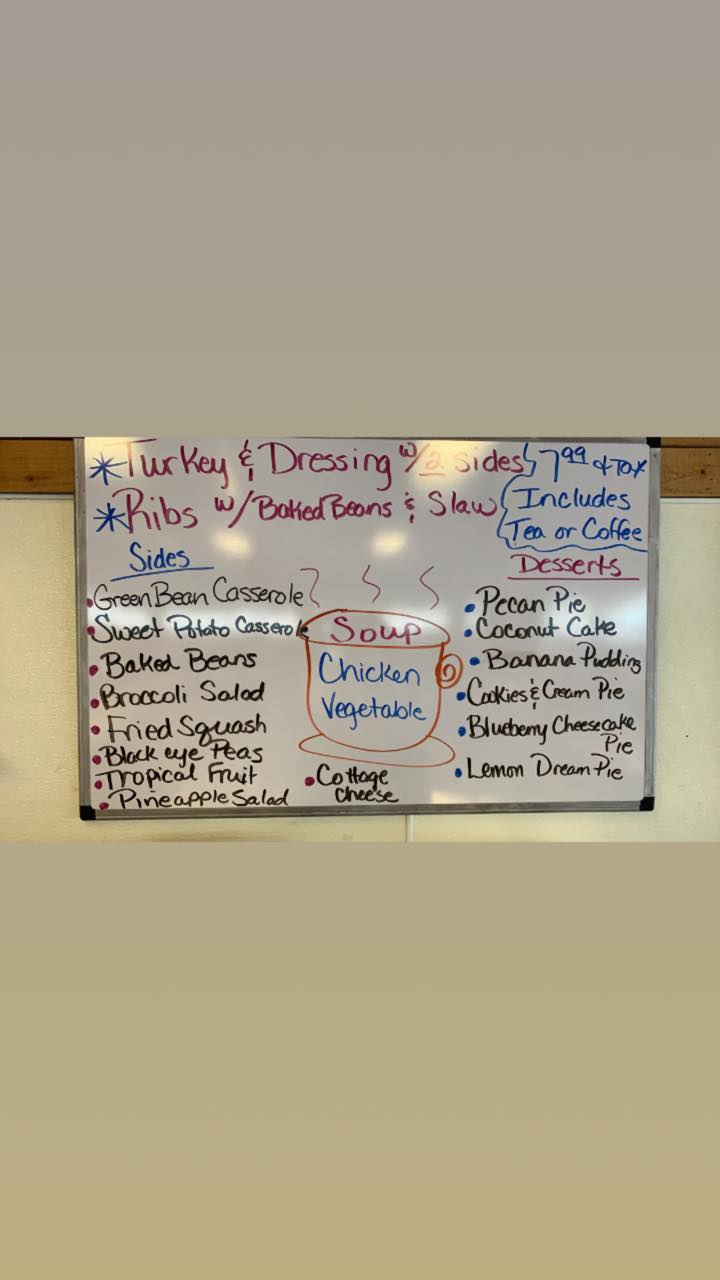 *Turkey & Dressing w/2 sides
7.99 + Tax
*Ribs w/Baked Beans & Slaw
Includes
Tea or Coffee
Sides
• Green Bean Casserole
• Sweet Potato Casserole
• Baked Beans
• Broccoli Salad
• Fried Squash
• Black eye Peas
• Tropical Fruit
• Pineapple Salad
Soup
Chicken
Vegetable
• Cottage
Cheese
Desserts
• Pecan Pie
• Coconut Cake
• Banana Pudding
• Cookies & Cream Pie
• Blueberry Cheesecake
Pie
• Lemon Dream Pie